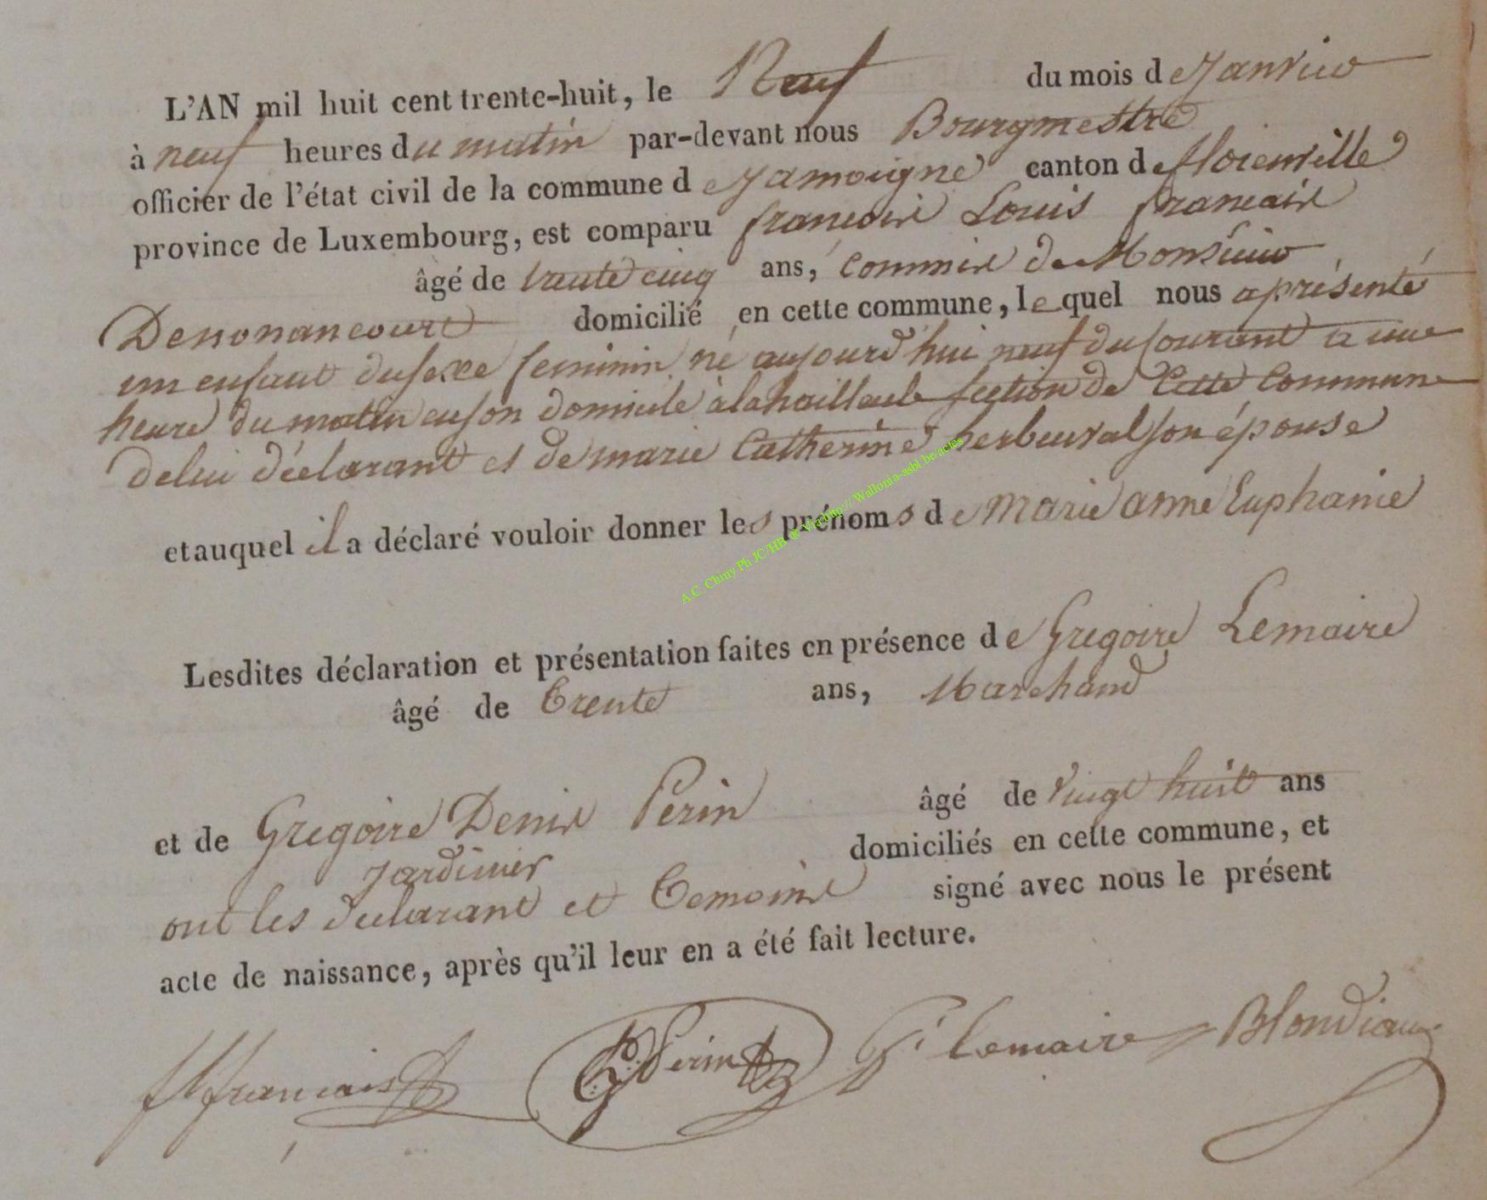 L'AN mil huit cent trente-huit, le Neuf du mois de Janvier
à neuf heures du matin par-devant nous Bourgmestre
officier de l'état civil de la commune de Jamoigne canton de florenville
province de Luxembourg, est comparu francois Louis francais
âgé de trente cinq ans, Commis de Monsieur
Denonancourt domicilié en cette commune, lequel nous a présenté
un enfant du sexe feminin né aujourd'hui neuf du courant a une
heure du matin en son domicile à la hailleule section de Cette Commune
de lui déclarant et de marie Catherine herbeuval son épouse
et auquel il a déclaré vouloir donner les prénoms de Marie anne Euphanie
Lesdites déclaration et présentation faites en présence de Gregoire Lemaire
âgé de trente ans, Marchand
et de Gregoire Denis Perin âgé de vingt huit ans
jardinier domiciliés en cette commune, et
ont les declarant et temoins signé avec nous le présent
acte de naissance, après qu'il leur en a été fait lecture.
fl francais GD Perin G lemaire Blondiaux